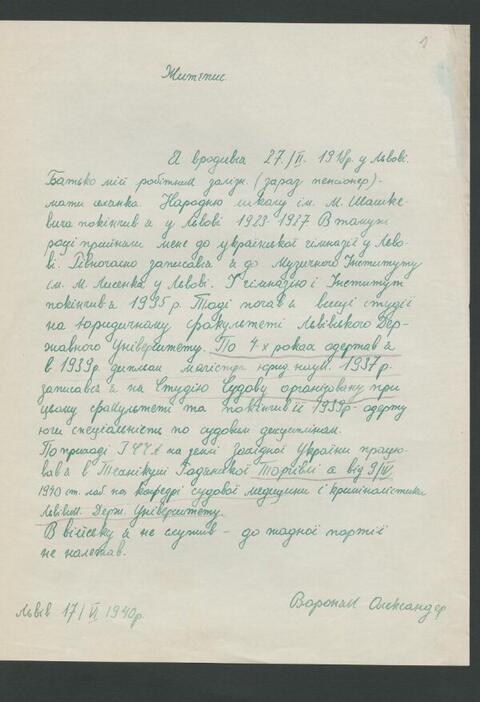 1
Житєпис.
Я вродився 27./II. 1918р. у Львові.
Батько мій робітник залізн. (зараз пенсіонер) -
мати селянка. Народню школу ім. М. Шашке-
вича покінчив я у Львові 1923-1927 В тому ж
році прийняли мене до української гімназії у Льво-
ві. Рівночасно записався я до Музичного Інституту
ім. М. Лисенка у Львові. І гімназію і Інститут
покінчив я 1935 р. Тоді почав я вищі студії
на юридичному факультеті Львівського Дер-
жавного Університету. По 4 х роках одержав я
в 1939р. диплом магістра юрид. наук. 1937 р.
записався я на Студію Судову організовану при
цьому факультеті та покінчив її 1939р. - одержу
ючи спеціяльність по судовим дисциплінам.
По приході ЧЧА на землі Західної України працю-
вав я в Технікумі Радянської Торгівлі а від 9/IV
1940 ст. лаб. на кафедрі судової медицини і криміналістики
Львівськ. Держ. Університету.
В війську я не служив - до жадної партії
не належав.
Львів 17/VI 1940р.
Олександер